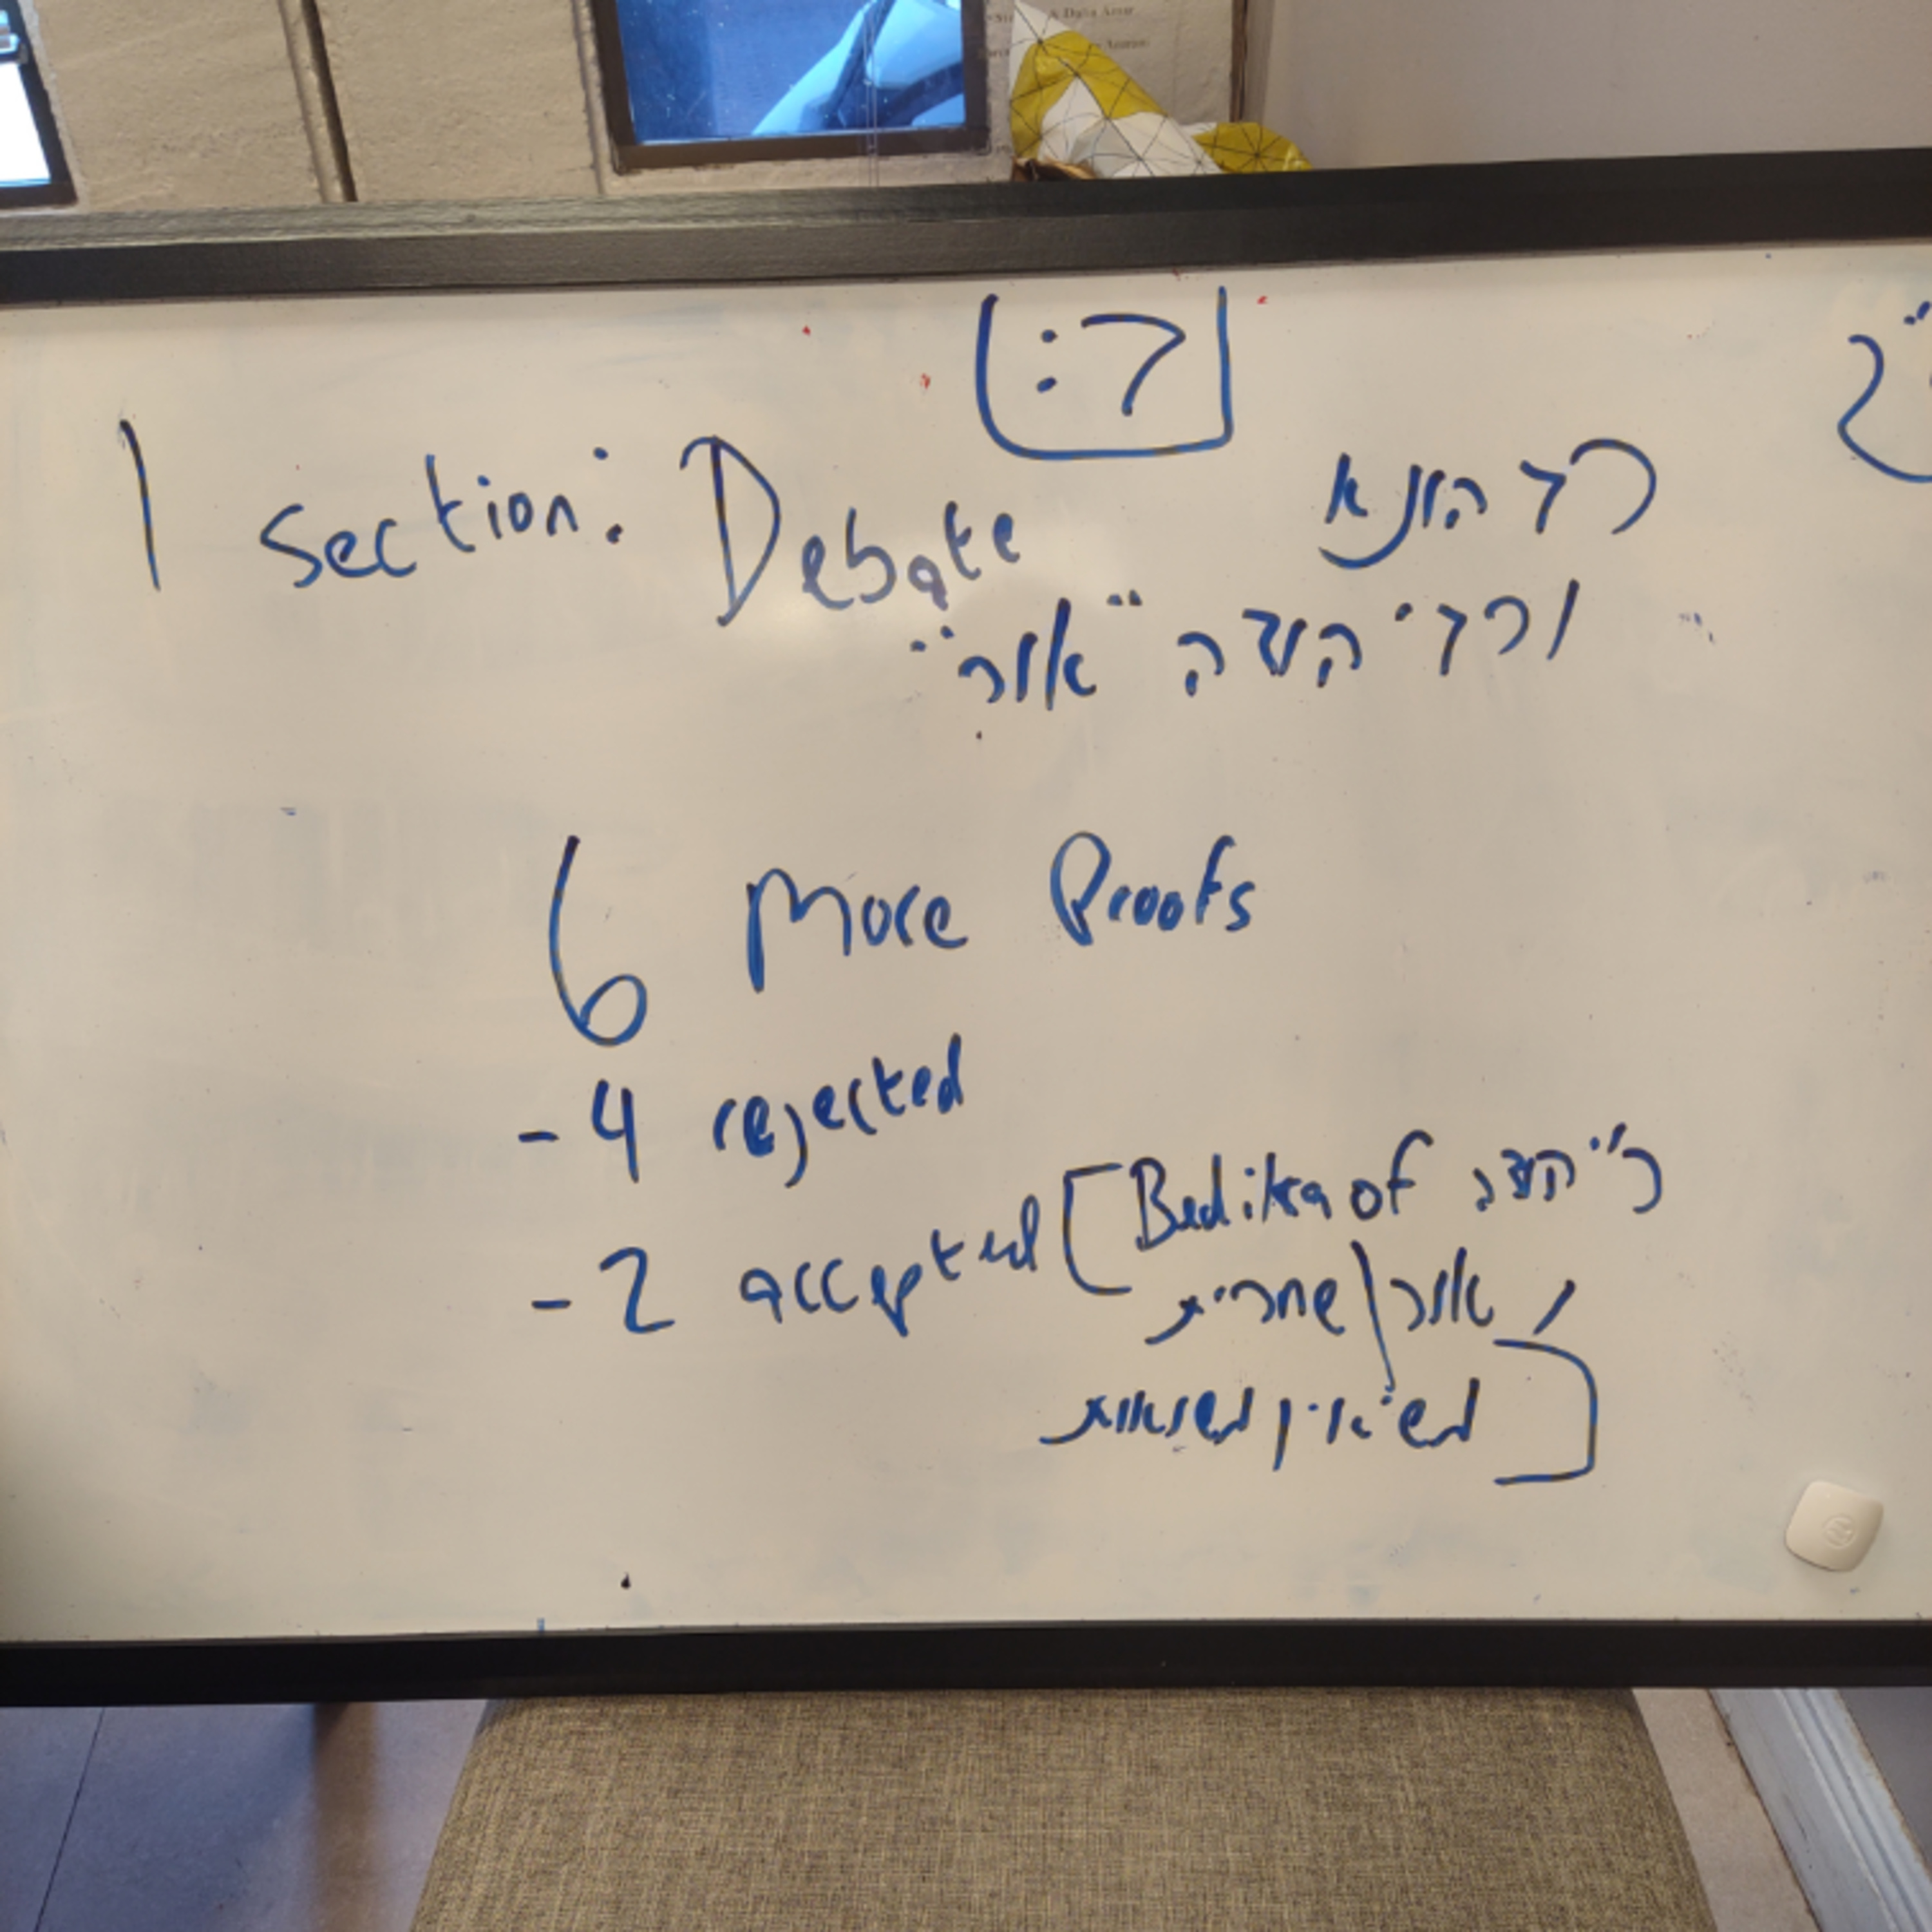 ב:
1 Section: Debate רב הונא
ורב יהודה "אור"
6 More Proofs
- 4 rejected
- 2 accepted [Bedika of ר' יהודה
אור/שחרית,
משיאין משואות]